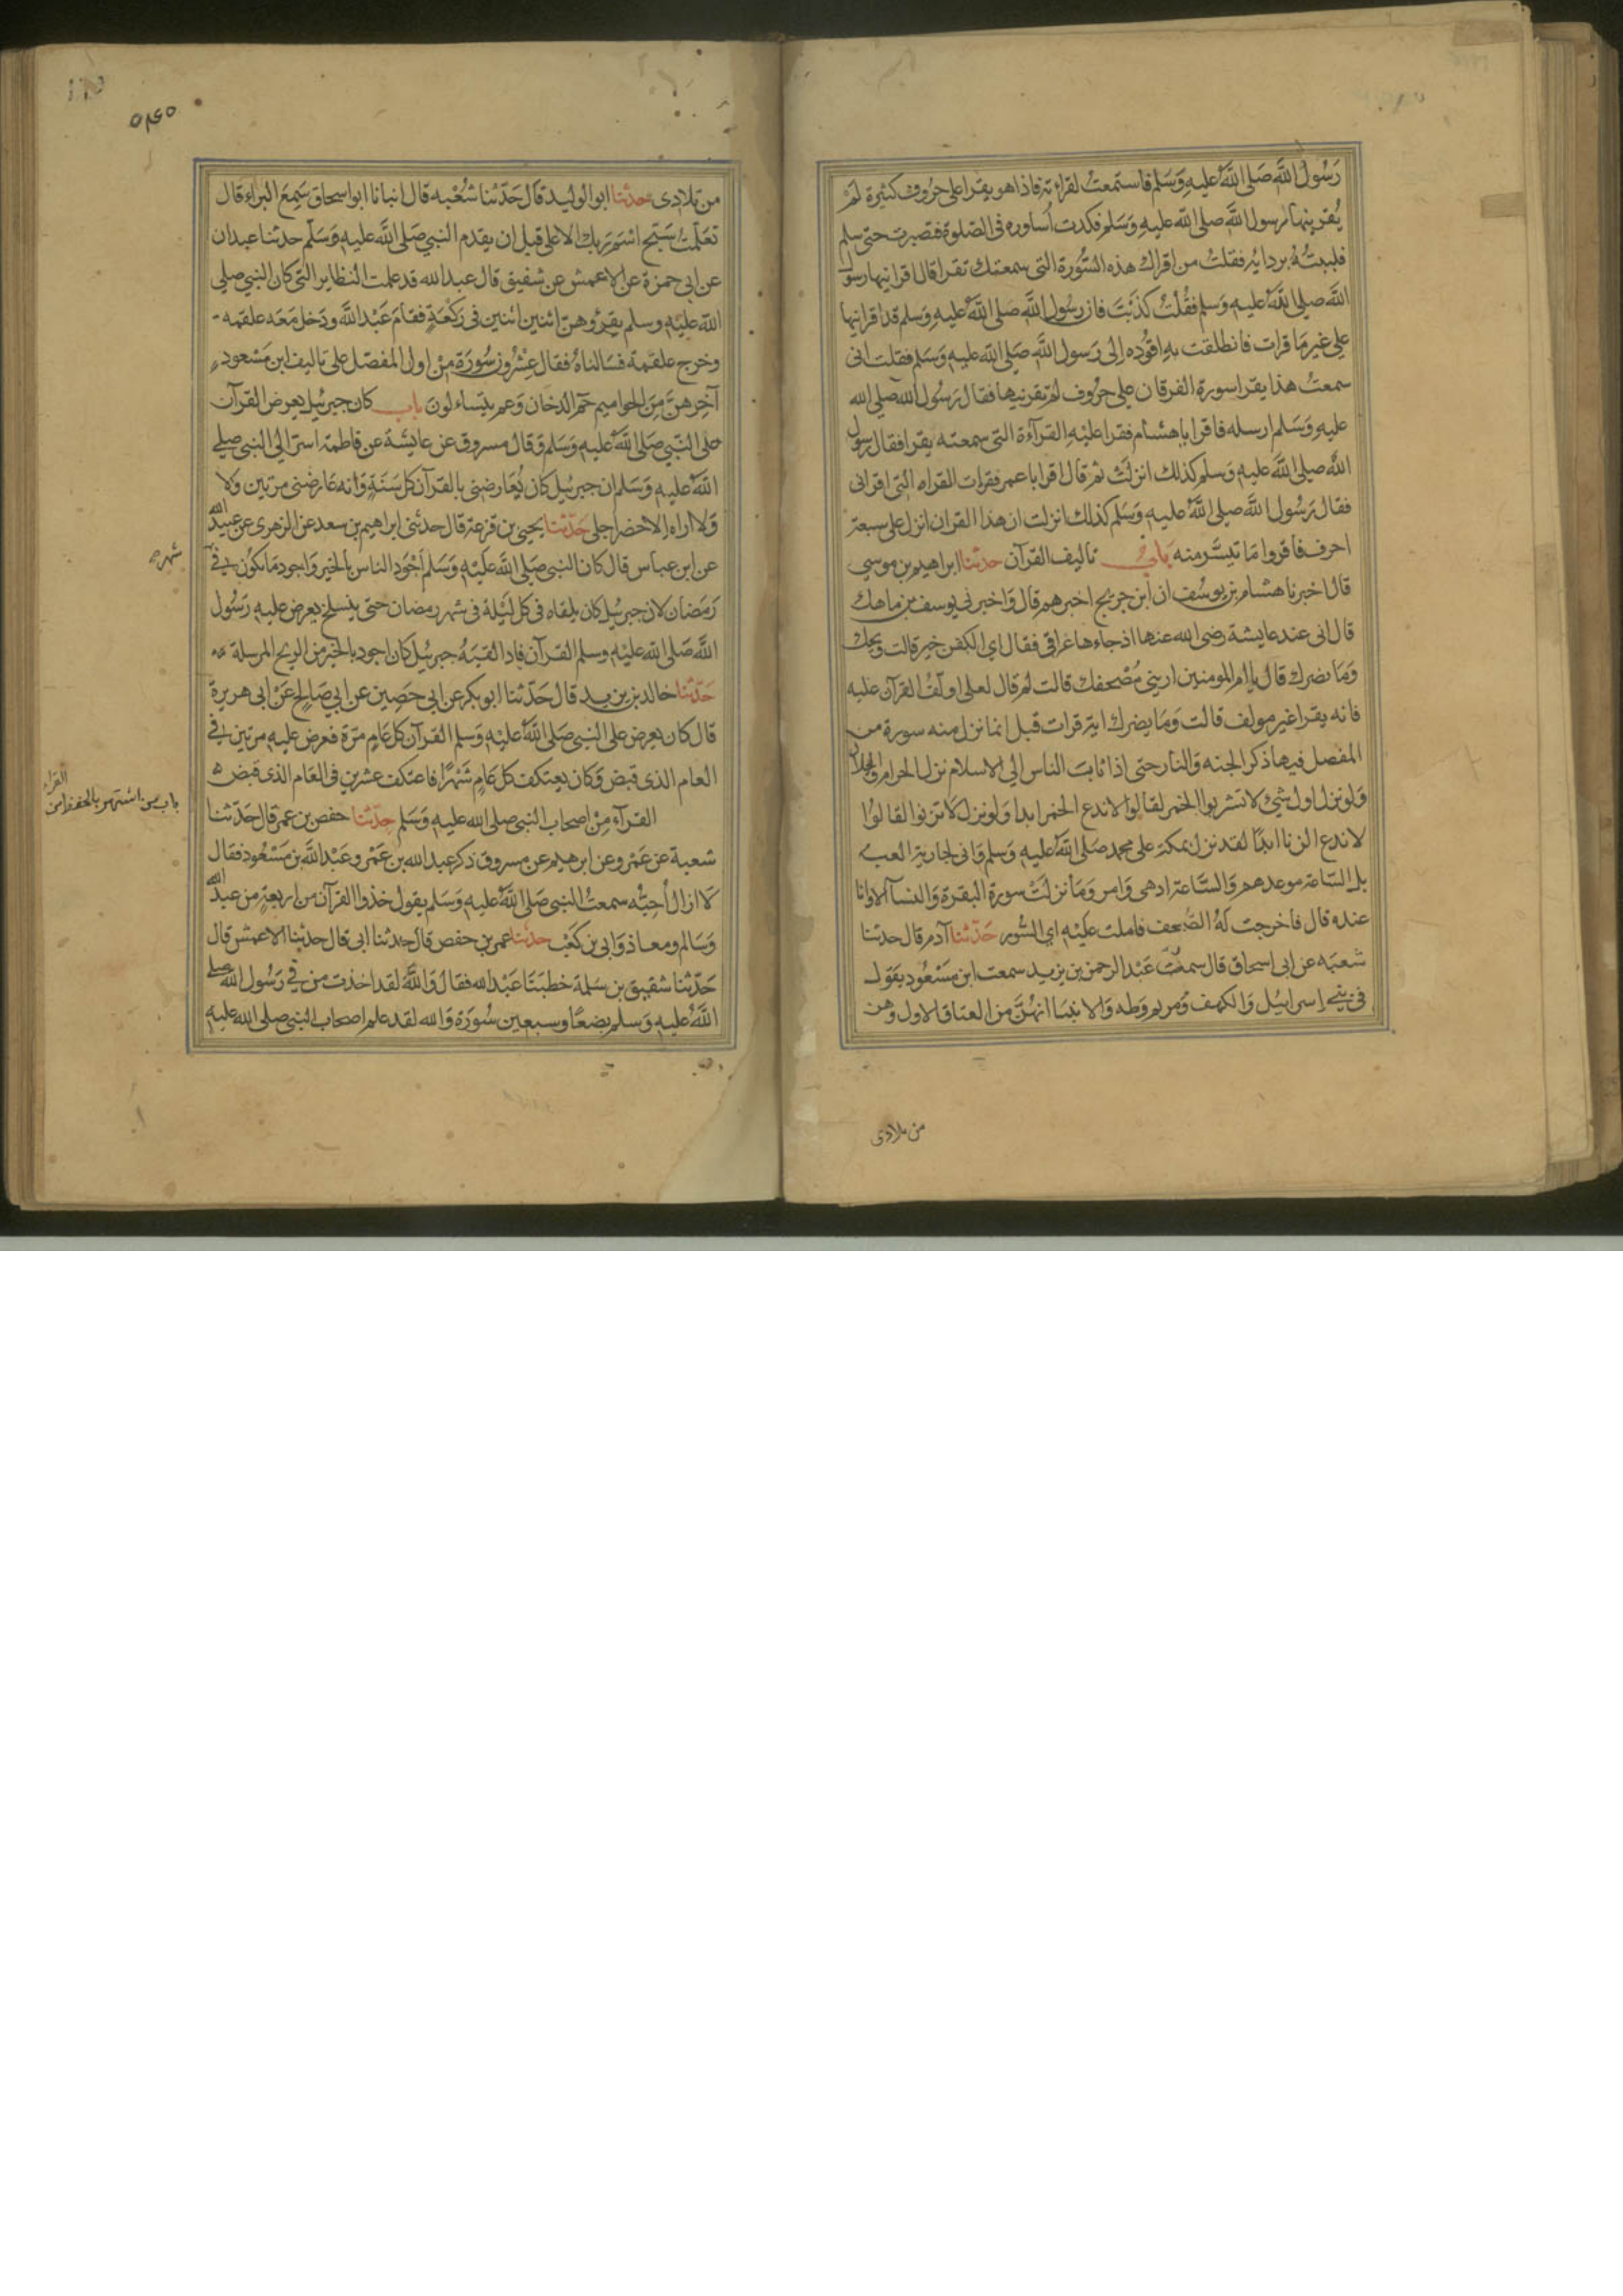 رَسُولَ اللَّهِ صَلى اللَّهُ عَليهِ وَسَلم فاستمعتُ لقراءته فاذا هو يقرا على حرُوف كثيرة لَم
يُقرينها رسول اللَّه صلى الله عليهِ وَسَلم فكدت اُساوره فى الصّلوة فتصبرت حتى سلم
فلببتُهُ بردايه فقلتُ من اقراك هذه السُّورة التى سمعتك تقرا قال اقرانيها رسول
اللَّه صلى اللهُ عليه وسلم فقُلتُ كذَبتَ فان رسُول اللَّه صَلى اللهُ عليهِ وَسَلم قد اقرانيها
على غير مَا قرات فانطلقت بهِ اقوُده الى رَسول اللَّه صَلى الله عليهِ وَسَلم فقلت انى
سمعتُ هذا يقرا سورة الفرقان على حرُوف لم تقرنيها فقال رَسُول الله صلى الله
عليهِ وَسَلم ارسله فاقرا يا هشام فقرا عليْهِ القرآءة التى سمعته يقرا فقال رسول
الله صلى الله عليهِ وسلم كذلك انزلتْ ثم قال اقرا يا عمر فقرات القراه التى اقرانى
فقال رَسُول اللَّه صلى اللَّهُ عليهِ وَسَلم كذلك انزلت ان هذا القران انزل على سبعة
احرف فاقروا مَا تيسَّر منه باب تاليف القرآن حدثنا ابراهيم بن موسي
قال اخبرنا هشام بن يوسُف ان ابن جريج اخبرهم قال وَاخبرنى يوسف بن ماهك
قال انى عند عايشة رضى الله عنها اذ جاءها عراقى فقال اي الكفن خير قالت ويحك
وَمَا يضرك قال يا ام المومنين ارينى مُصْحفك قالت لم قال لعلى اولف القرآن عليه
فانه يقرا غير مولف قالت وَمَا يضرك ايه قرات قبل انما نزل منه سورة من
المفصل فيها ذكر الجنه وَالنار حتى اذا ثابت الناس الى الاسلام نزل الحرام والحلال
وَلو نزل اول شئ لا تشربوا الخمر لقالوا لا ندع الخمر ابدا وَلو نزل لا تزنوا لقالوُا
لا ندع الزنا ابدًا لقد نزل بمكة على محمد صَلى اللهُ عليهِ وسلم وَانى لجارية العب
بل السّاعة موعدهم وَالسَّاعة ادهى وَامر وَمَا نزلتْ سورة البقرة وَالنسآ الا وانا
عنده قال فاخرجت لهُ المصحف فاملت عليْهِ اي السُّور حَدّثنا آدم قال حدثنا
شعبَه عن ابى اسحاق قال سمعتُ عَبْد الرحمن بن يزيد سمعت ابن مَسْعُود يقول
فى بنى إسراييْل وَالكهف وَمريم وَطه وَالانبيَا انهُنَّ من العتاق الاول وهن
من تلادى
٥٤٥
من تلادى حدثنا ابو الوليد قال حَدّثنا شُعْبه قال انبانا ابو اسحاق سَمِعَ البراء قال
تعَلّمتُ سَبّح اسْمَ رَبك الاعلى قبل ان يقدم النبي صَلى اللَّه عليهِ وَسَلّم حدثنا عبدان
عن ابى حمزة عن الاعمش عن شقيق قال عبد الله قد علمت النظاير التى كان النبي صلى
اللَّه عليْهِ وسلم يقرؤهنّ اثنين اثنين فى رَكعَةٍ فقامَ عَبْد اللَّه ودَخل مَعَه علقمه
وخرج علقمة فسَالناهُ فقال عِشْرُون سُورَة مِنْ اول المفصّل على تاليف ابن مَسْعود
آخِرهنَّ مِنَ الحواميم حمّ الدخان وَعم يتساءلون باب كان جبرئيل يعرض القرآن
على النّبي صَلى اللَّه عليهِ وَسَلم وَقال مسروق عن عايشَة عن فاطمة اسرّ الى النبى صلى
اللهُ عليهِ وَسَلم ان جبرئيل كان يُعَارضنى بالقرآن كل سَنَةٍ وَانه عَارضنى مرتين وَلا
وَلا اراه الا حضر اجلى حَدّثنا يحيى بن قزعة قال حدثنى ابراهيم بن سعد عن الزهرى عن عبيد الله
عن ابن عباس قال كان النبى صَلى اللَّه عَليْهِ وَسَلم اَجْوَد الناس بالخير وَاجود مَا يكُون فى
شهر
رَمَضان لان جبرئيل كان يلقاه فى كل ليْلة فى شهر رمضان حتى ينسلخ يعرض عليهِ رَسُول
اللَّه صَلى اللهُ عليْهِ وسلم القرآن فاذا لقيَهُ جبرئيل كان اجود بالخير من الريح المرسلة
حَدّثنا خالد بن يزيد قال حَدّثنا ابو بكر عن ابى حَصِين عن ابى صَالح عَنْ ابى هريرة
قال كان يعرض على النبى صَلى اللهُ عليْهِ وَسَلم القرآن كل عَامٍ مرّة فعرض عليهِ مرتين فى
العام الذى قبض وَكان يعتكف كل عَامٍ شَهْرًا فاعتكف عشرين فى العَام الذى قبض
باب من اشتهر بالحفظ من القراء
القرآء مِنْ اصحاب النبى صلى الله عليهِ وَسَلم حدّثنا حفص بن عمر قال حَدّثنا
شعبة عن عَمْرو عن ابرهيم عن مسروق ذكر عبد الله بن عَمْرو عَبْد اللَّه بن مَسْعُود فقال
لَا ازال اُحِبُّه سمعتُ النبى صَلى اللَّهُ عليهِ وَسَلم يقول خذوا القرآن من اربعةٍ من عبد الله
وَسَالم ومعاذ وَابى بن كعْب حدثنا عمر بن حفص قال حدثنا ابى قال حدثنا الاعمش قال
حَدّثنا شقيق بن سَلمة خطبَنا عَبْد الله فقال وَاللَّه لقد اخذت من فى رَسُول الله صلى
اللَّهُ عليهِ وَسلم بضعًا وسبعين سُورَة وَالله لقد علم اصحاب النبى صلى الله عليهِ